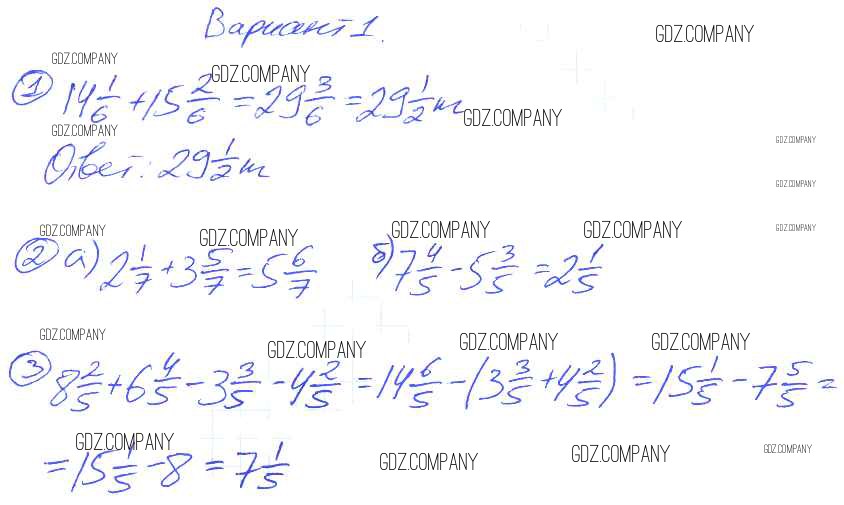 Вариант 1.
GDZ.COMPANY
GDZ.COMPANY
GDZ.COMPANY
① 14 1/6 + 15 2/6 = 29 3/6 = 29 1/2 m
GDZ.COMPANY
GDZ.COMPANY
GDZ.COMPANY
Ответ: 29 1/2 m
GDZ.COMPANY
GDZ.COMPANY
GDZ.COMPANY
GDZ.COMPANY
GDZ.COMPANY
GDZ.COMPANY
② а) 2 1/7 + 3 5/7 = 5 6/7 б) 7 4/5 - 5 3/5 = 2 1/5
GDZ.COMPANY
GDZ.COMPANY
GDZ.COMPANY
GDZ.COMPANY
③ 8 2/5 + 6 4/5 - 3 3/5 - 4 2/5 = 14 6/5 - (3 3/5 + 4 2/5) = 15 1/5 - 7 5/5 =
GDZ.COMPANY
GDZ.COMPANY
GDZ.COMPANY
GDZ.COMPANY
= 15 1/5 - 8 = 7 1/5